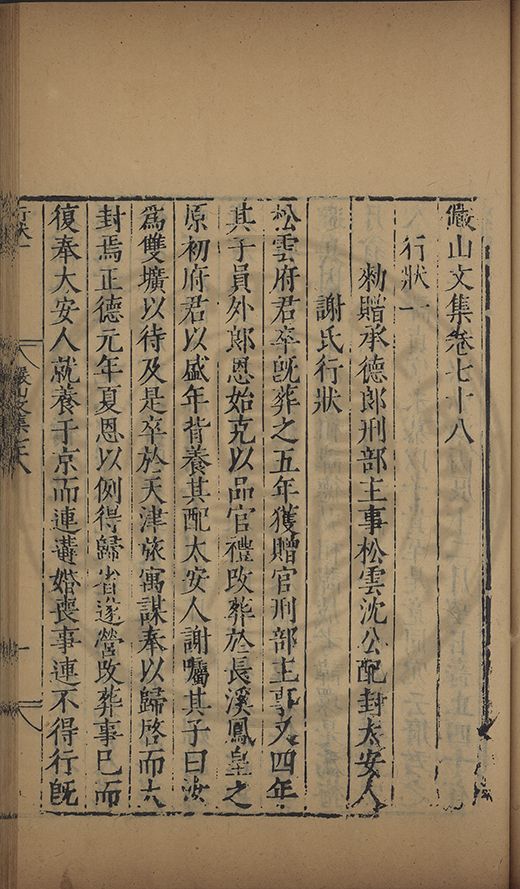 儼山文集卷七十八
行狀一
勑贈承德郎刑部主事松雲沈公配封太安人
謝氏行狀
松雲府君卒既葬之五年獲贈官刑部主事又四年
其子員外郎恩始克以品官禮改葬於長溪鳳皇之
原初府君以盛年背養其配太安人謝囑其子曰汝
為雙壙以待及是卒於天津旅寓謀奉以歸啓而大
封焉正德元年夏恩以例得歸省遂營改葬事已而
復奉太安人就養于京而連遘婚喪事連不得行既
行狀一